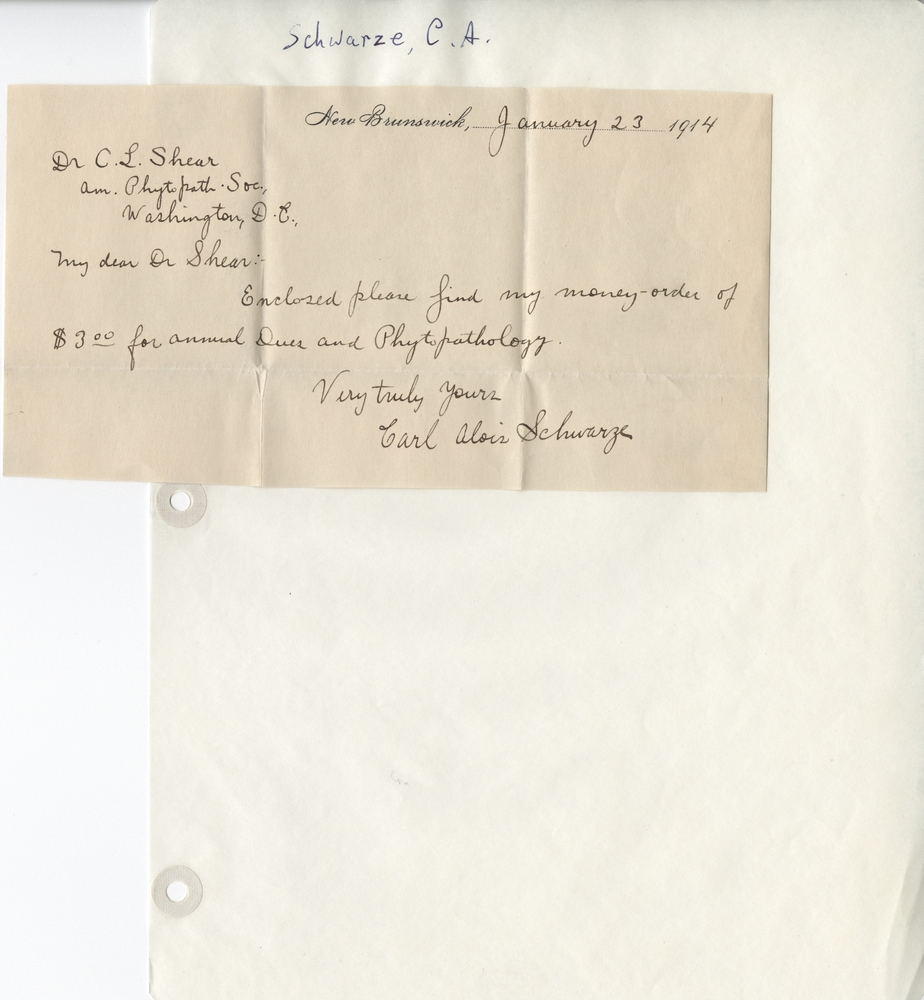 Schwarze, C.A.
New Brunswick, January 23 1914
Dr C.L. Shear
Am. Phytopath. Soc.,
Washington, D.C.,
My dear Dr Shear:-
Enclosed please find my money-order of
$3.00 for annual Dues and Phytopathology.
Very truly yours
Carl Alois Schwarze